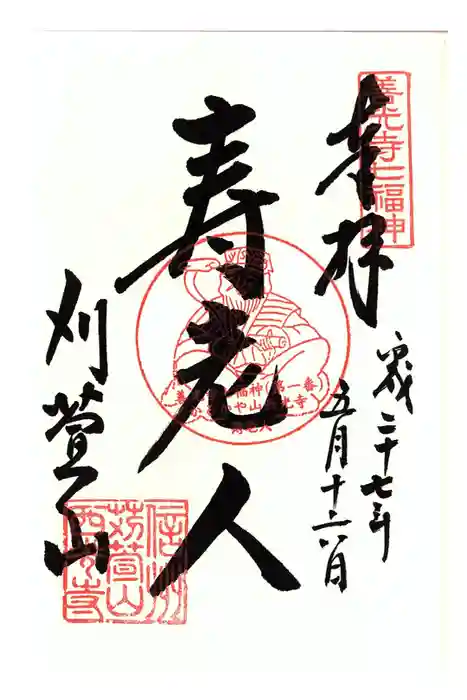 善光寺七福神
奉拝
平成二十七年
五月十六日
寿老人
刈萱山
信州
苅萱山
西光寺